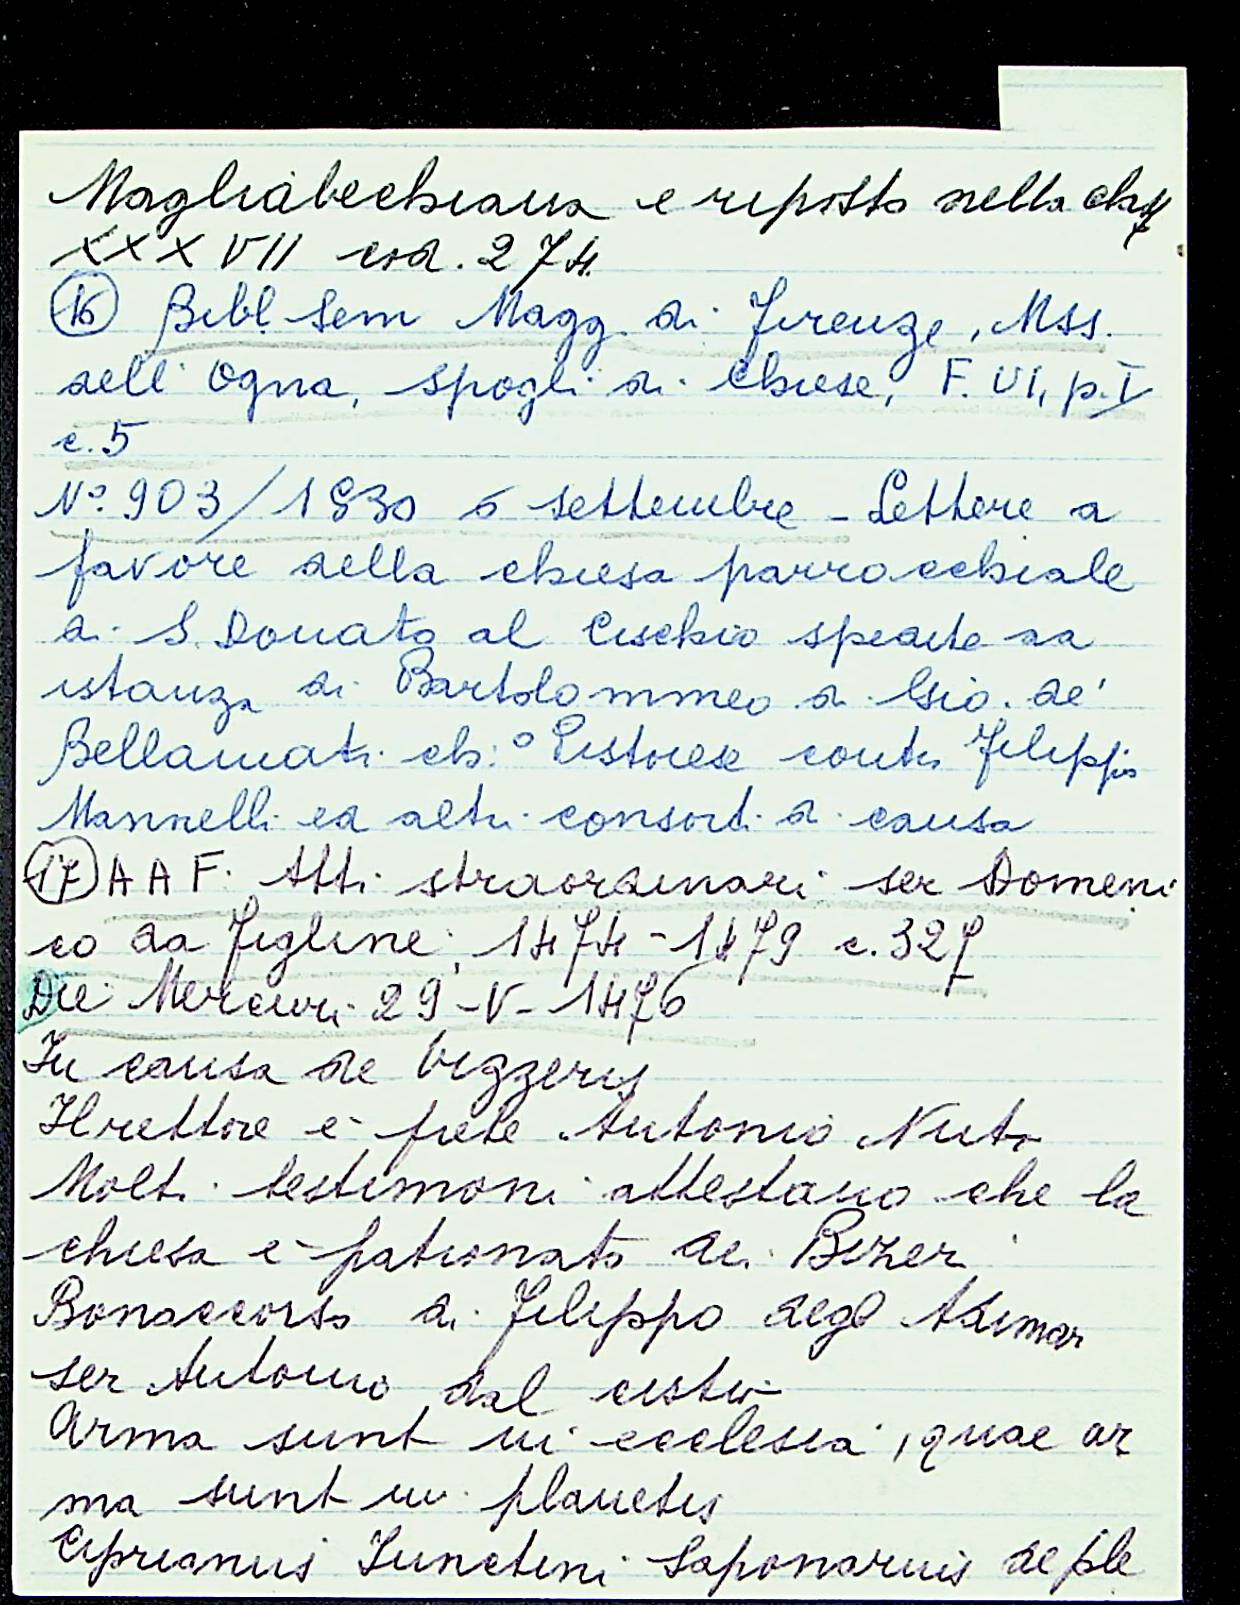 Magliabechiana e riposto nella
XXXVII cod. 274
16 Bibl Sem Magg. di Firenze, Mss.
dell' Ogna, spogli di Chiese, F. VI, p. I
c. 5
N° 903/1530 6 settembre - Lettere a
favore della chiesa parrocchiale
di S. Donato al Cischio spedite ad
istanza di Bartolommeo di Gio. de'
Bellamati ch:° Pistoiese contro Filippo
Mannelli ed altri consorti di causa
17 AAF. Atti straordinari ser Domeni
co da Figline, 1474-1479 c. 327
Die Mercuri 29-V-1476
In causa de Vizzeris
Il rettore è prete Antonio Nuti
Molti testimoni attestano che la
chiesa è patronato dei Bizer
Bonaccorso di Filippo degl Adimar
ser Antonio dal cistio
Arma sunt in ecclesia, quae ar
ma sunt in planetis
Ciprianus Iunctini Saponarius de ple